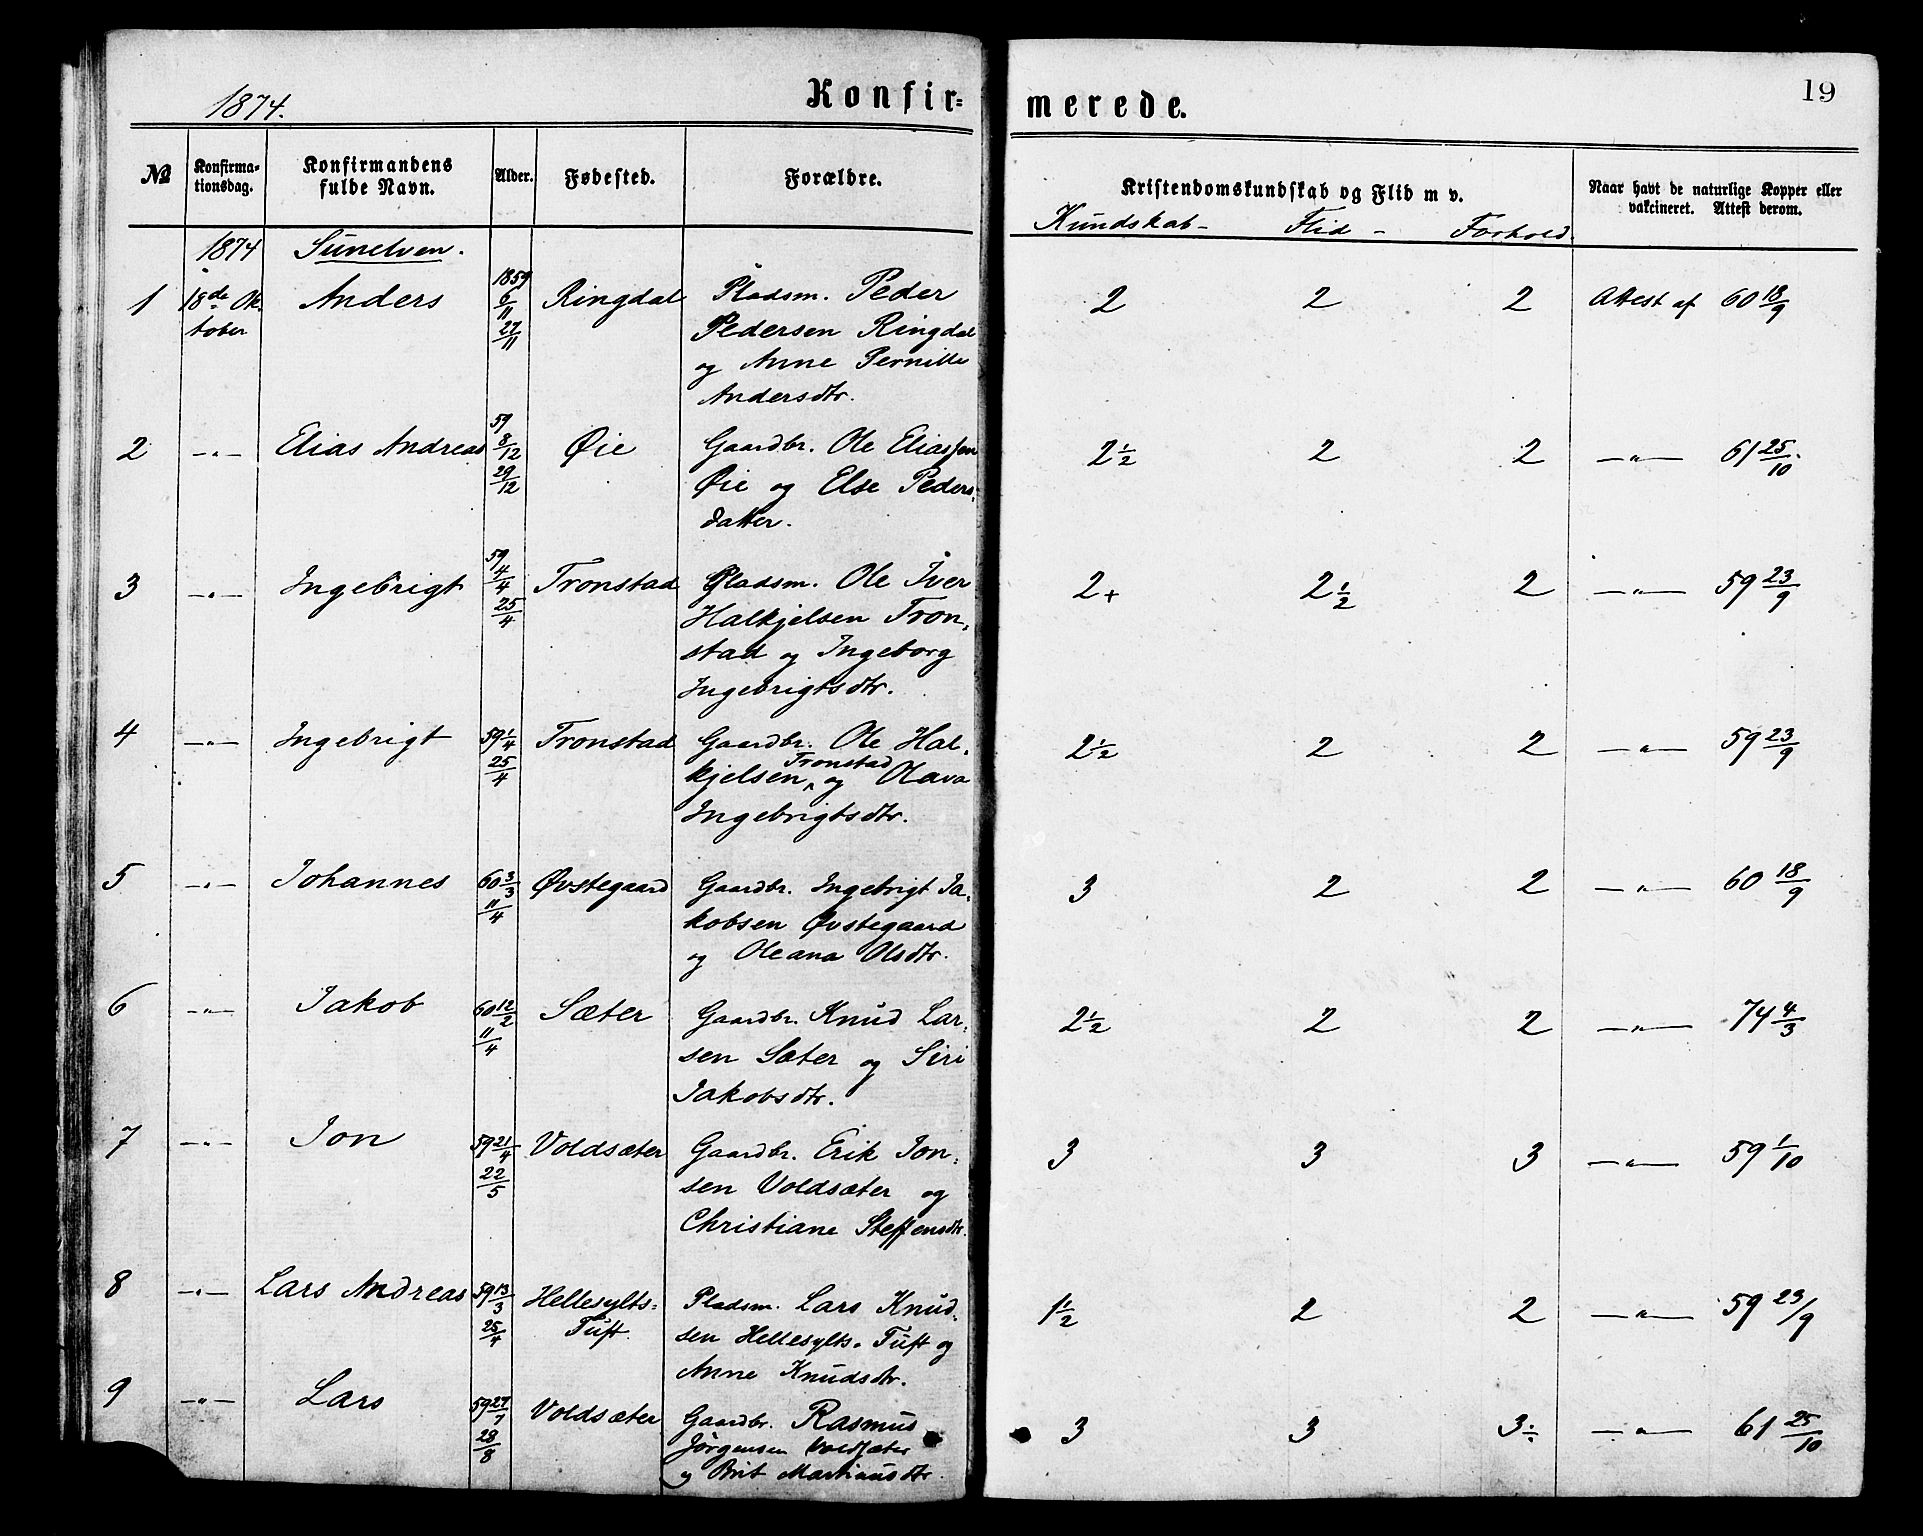 1874.
Konfir=
merede.
19
№
Konfirma-
tionsdag.
Konfirmandens
fulde Navn.
Alder.
Fødested.
Forældre.
Kristendomskundskab og Flid m v.
Kundskab - Flid - Forhold.
Naar havt de naturlige Kopper eller
vakcineret. Attest derom.
1874 Sunelven.
1 18de Ok- Anders 1859 6/11 Ringdal Pladsm. Peder 2 2 2 Attest af 60 18/9
tober 27/11 Pedersen Ringdal
og Anne Pernille
Andersdtr.
2 -"- Elias Andreas 59 8/12 Øie Gaardbr. Ole Eliassen 2½ 2 2 -"- 61 25/10.
29/12 Øie og Else Peders-
datter.
3 -"- Ingebrigt 59 4/4 Tronstad Pladsm. Ole Iver 2+ 2½ 2 -"- 59 23/9
25/4 Halkjelsen Tron-
stad og Ingeborg
Ingebrigtsdtr.
4 -"- Ingebrigt 59 1/4 Tronstad Gaardbr. Ole Hal- 2½ 2 2 -"- 59 23/9
25/4 kjelsen Tronstad og Olava
Ingebrigtsdtr.
5 -"- Johannes 60 3/3 Øvstegaard Gaardbr. Ingebrigt Ja- 3 2 2 -"- 60 18/9
11/4 kobsen Øvstegaard
og Oleana Olsdtr.
6 -"- Jakob 60 12/2 Sæter Gaardbr. Knud Lar- 2½ 2 2 -"- 74 4/3
11/4 sen Sæter og Siri
Jakobsdtr.
7 -"- Jon 59 21/4 Voldsæter Gaardbr. Erik Jon- 3 3 3 -"- 59 1/10
22/5 sen Voldsæter og
Christiane Steffensdtr.
8 -"- Lars Andreas 59 13/3 Hellesylts= Pladsm. Lars Knud- 1½ 2 2 -"- 59 23/9
25/4 Tuft. sen Hellesylts- Tuft og
Anne Knudsdtr.
9 -"- Lars 59 27/7 Voldsæter Gaardbr. Rasmus 3 3 3÷ -"- 61 25/10
28/8 Jørgensen Voldsæter
og Brit Martinusdtr.